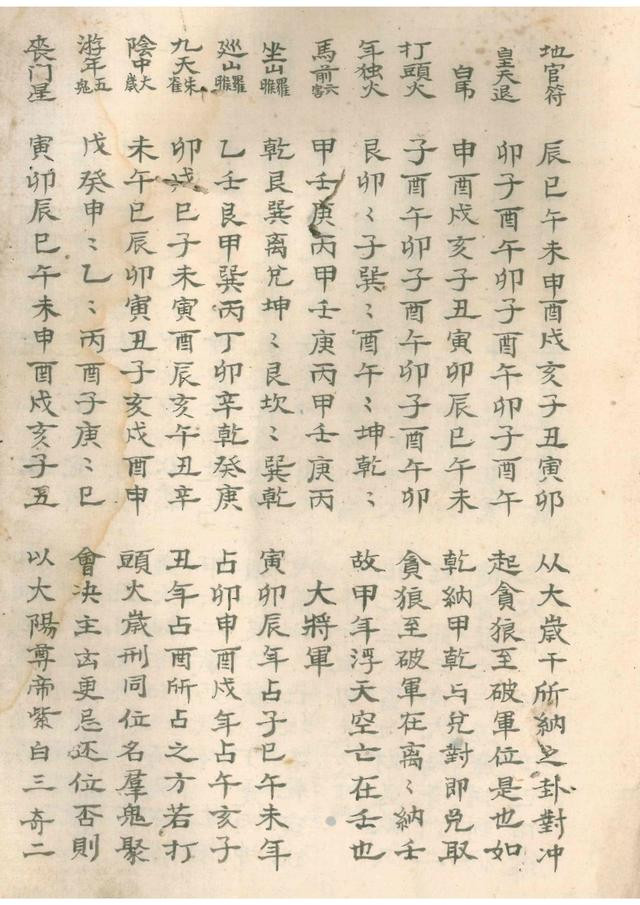 地官符 辰巳午未申酉戌亥子丑寅卯
皇天退 卯子酉午卯子酉午卯子酉午
白吊 申酉戌亥子丑寅卯辰巳午未
打頭火 子酉午卯子酉午卯子酉午卯
年独火 艮卯〻子巽〻酉午〻坤乾〻
馬前六害 甲壬庚丙甲壬庚丙甲壬庚丙
坐山羅睺 乾艮巽离兌坤〻艮坎〻巽乾
廵山羅睺 乙壬艮甲巽丙丁卯辛乾癸庚
九天朱雀 卯戌巳子未寅酉辰亥午丑辛
陰中大歲 未午巳辰卯寅丑子亥戌酉申
游年五鬼 戊癸申〻乙〻丙酉子庚〻巳
喪门星 寅卯辰巳午未申酉戌亥子丑
从大歲干所納之卦對冲
起貪狼至破軍位是也如
乾納甲乾与兌對即兌取
貪狼至破軍在离〻納壬
故甲年浮天空亡在壬也
大將軍
寅卯辰年占子巳午未年
占卯申酉戌年占午亥子
丑年占酉所占之方若打
頭火歲刑同位名羣鬼聚
會决主凶更忌还位否則
以大陽尊帝紫白三奇二